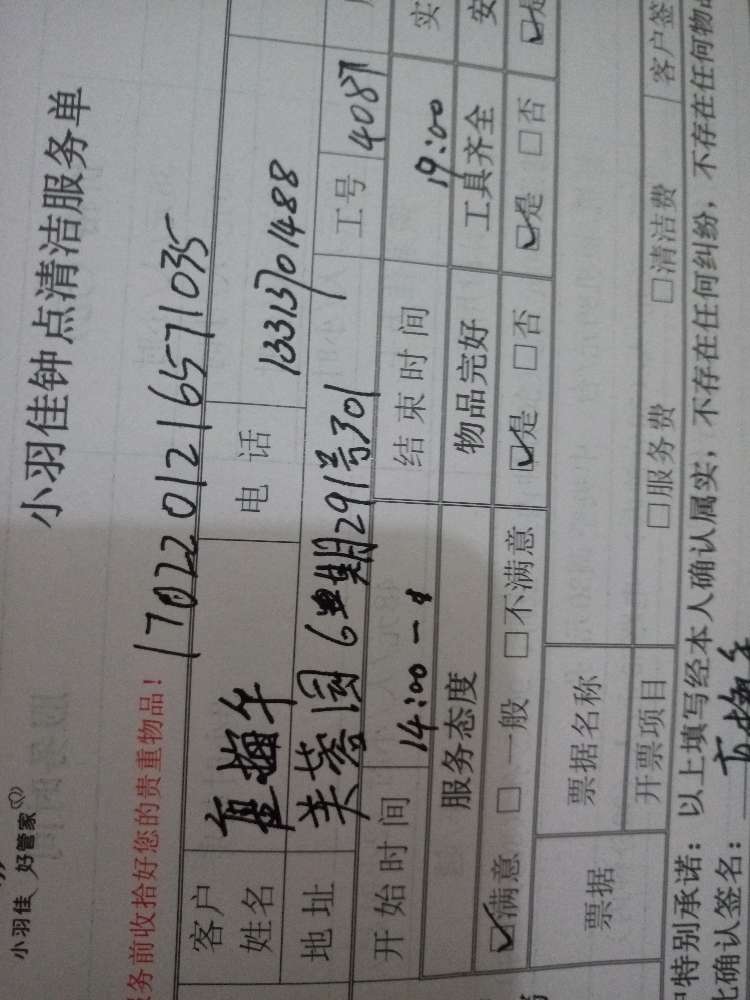 小羽佳 好管家
小羽佳钟点清洁服务单
务前收拾好您的贵重物品！ 1702201216571035
客户姓名 电话 13313701488
地址 芙蓉园6期291号301 工号 4087
开始时间 14:00 结束时间 19:00 实
服务态度 物品完好 工具齐全 安
☑满意 □一般 □不满意 ☑是 □否 ☑是 □否 ☑是
票据 票据名称
开票项目 □服务费 □清洁费
特别承诺：以上填写经本人确认属实，不存在任何纠纷，不存在任何物品
比确认签名： 客户签